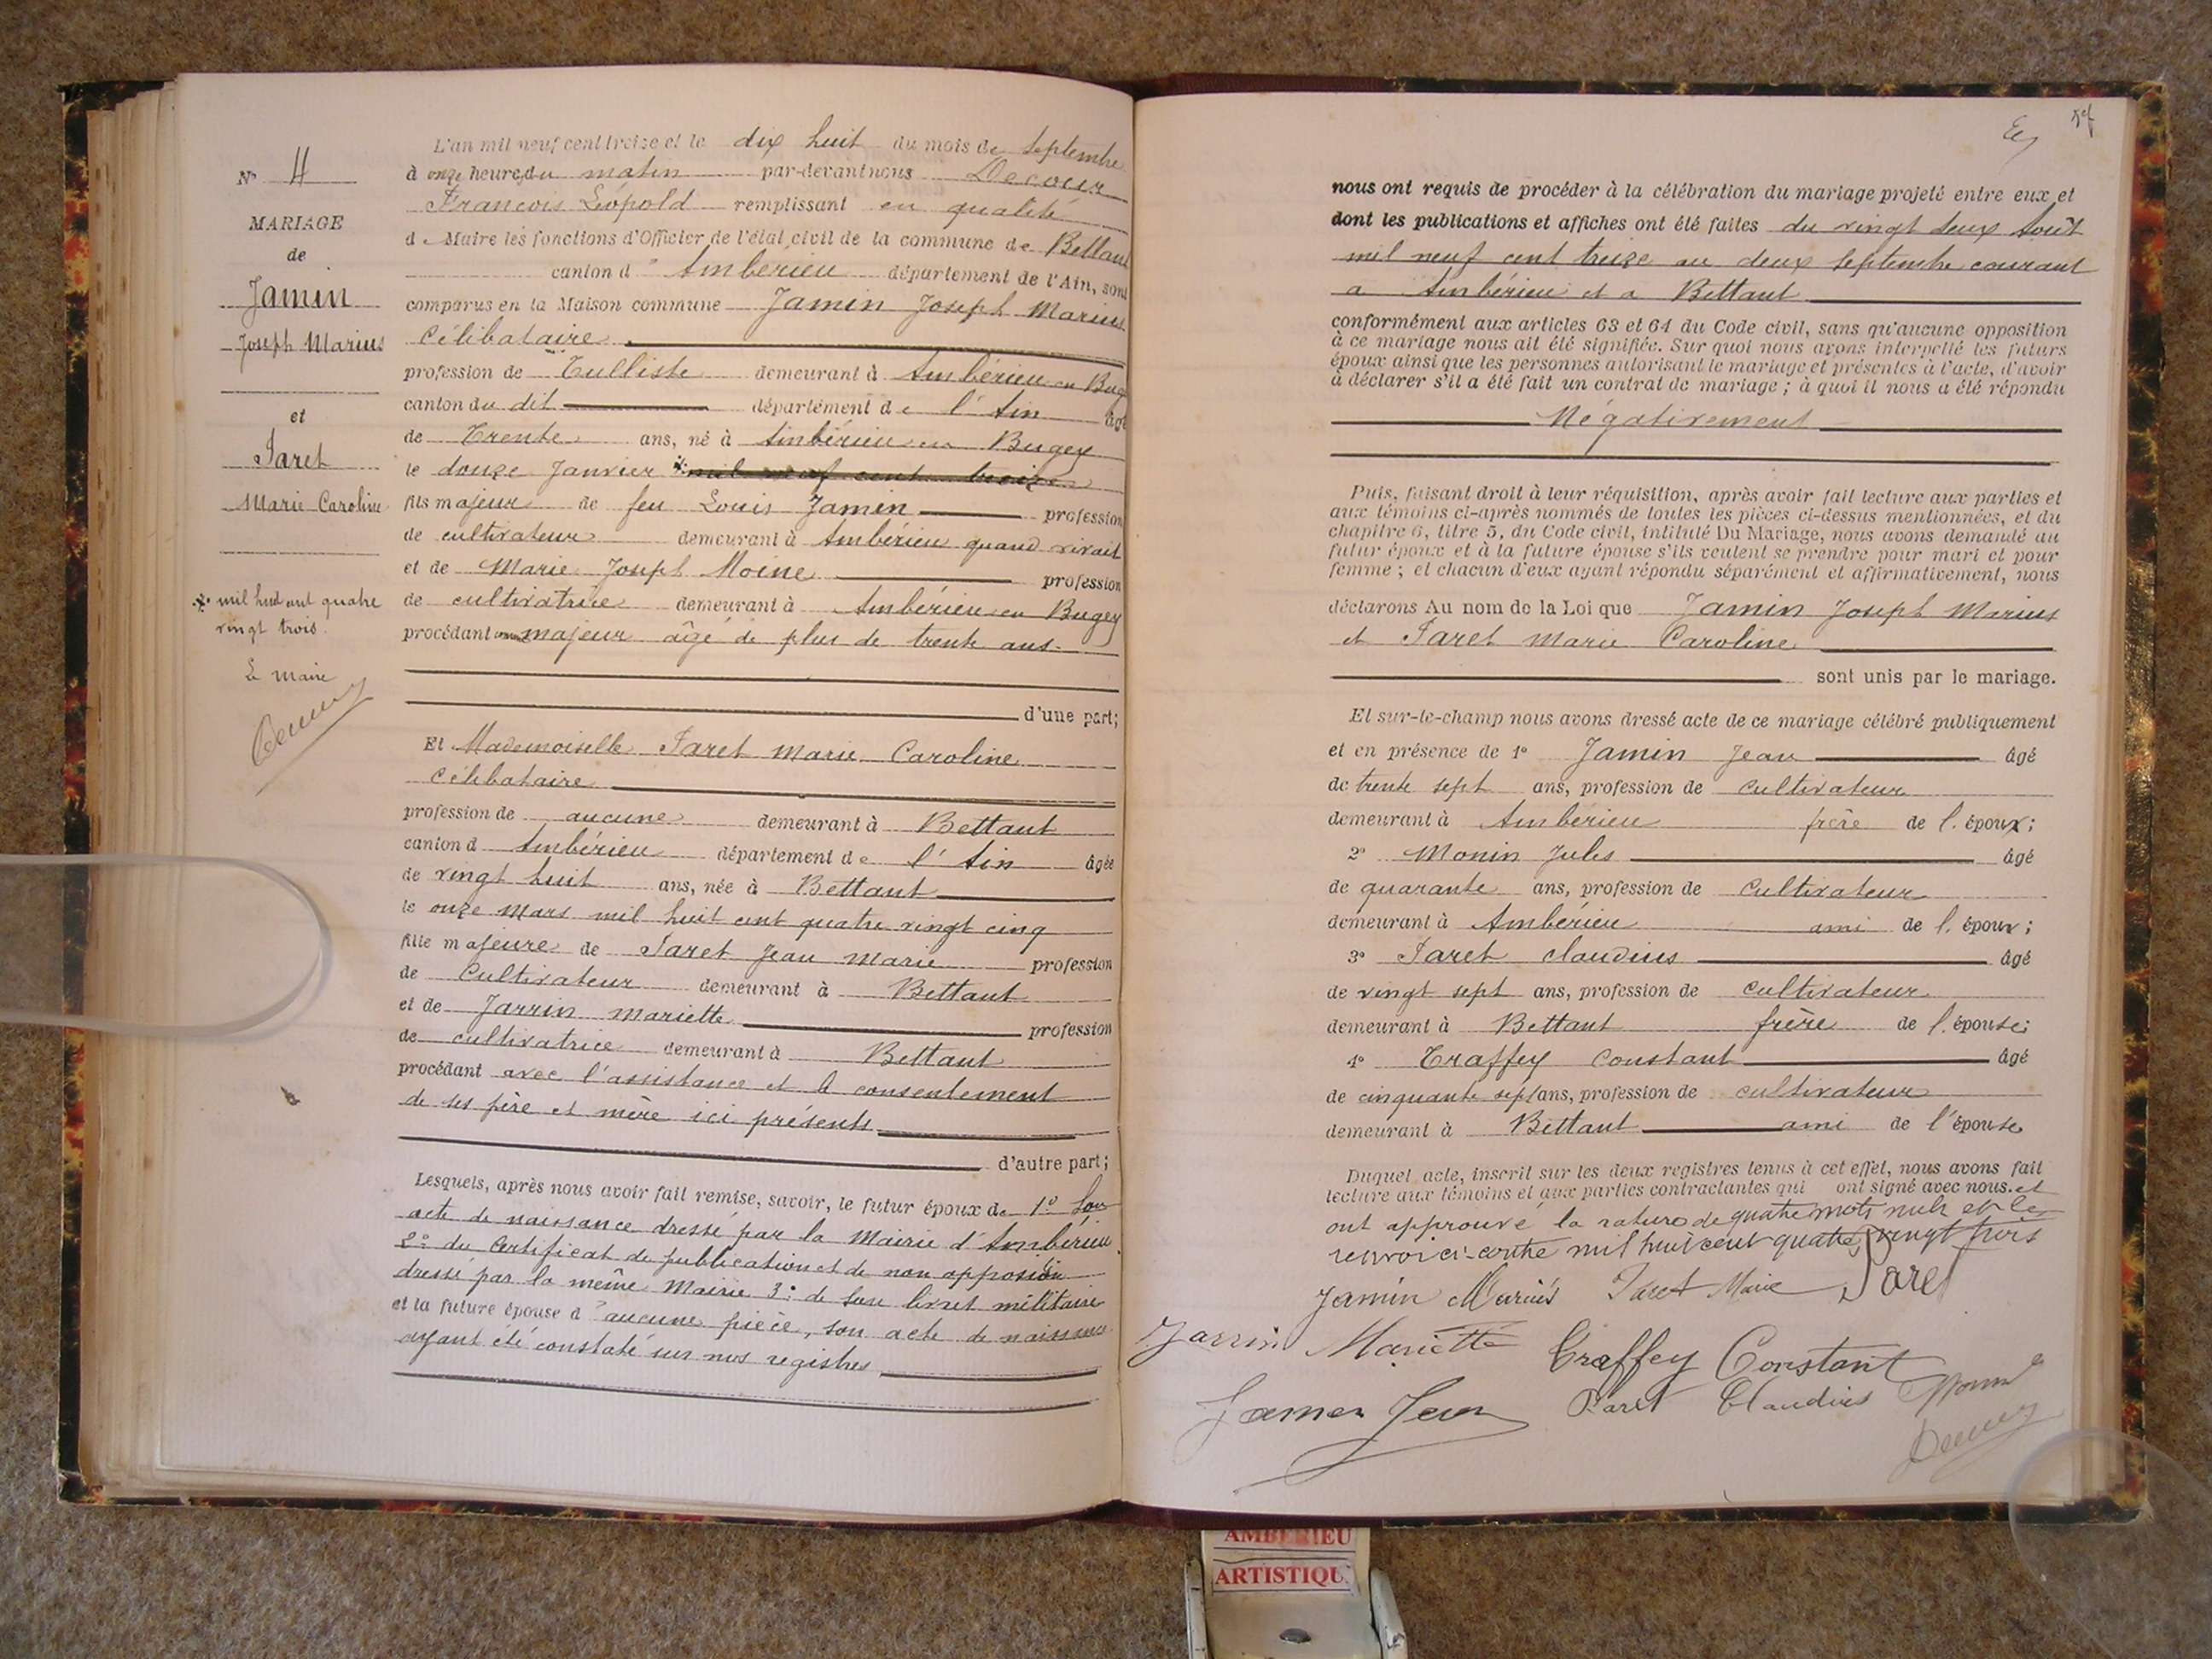 L'an mil neuf cent treize et le dix huit du mois de Septembre
à onze heures du matin par-devant nous Decour
François Léopold remplissant en qualité
de Maire les fonctions d'Officier de l'état civil de la commune de Bettant
canton d'Ambérieu département de l'Ain, sont
comparus en la Maison commune Jamin Joseph Marius
Célibataire
profession de Tulliste demeurant à Ambérieu en Bugey
canton du dit département de l'Ain âgé
de Trente ans, né à Ambérieu en Bugey
le douze Janvier * mil neuf cent treize
fils majeur de feu Louis Jamin profession
de cultivateur demeurant à Ambérieu quand vivait
et de Marie Joseph Moine profession
de cultivatrice demeurant à Ambérieu en Bugey
procédant comme majeur âgé de plus de trente ans
d'une part;
Et Mademoiselle Paret Marie Caroline
Célibataire
profession de aucune demeurant à Bettant
canton d'Ambérieu département de l'Ain âgée
de vingt huit ans, née à Bettant
le onze Mars mil huit cent quatre vingt cinq
fille majeure de Paret Jean Marie profession
de Cultivateur demeurant à Bettant
et de Jarrin Mariette profession
de cultivatrice demeurant à Bettant
procédant avec l'assistance et le consentement
de ses père et mère ici présents
d'autre part;
Lesquels, après nous avoir fait remise, savoir, le futur époux de 1° Son
acte de naissance dressé par la Mairie d'Ambérieu
2° du Certificat de publication et de non opposition
dressé par la même Mairie 3° de son livret militaire
et la future épouse d'aucune pièce, son acte de naissance
ayant été constaté sur nos registres
N° 4
MARIAGE
de
Jamin
Joseph Marius
et
Paret
Marie Caroline
* mil huit cent quatre
vingt trois.
Le Maire
Decour
nous ont requis de procéder à la célébration du mariage projeté entre eux et
dont les publications et affiches ont été faites du vingt deux Août
mil neuf cent treize au deux Septembre courant
à Ambérieu et à Bettant
conformément aux articles 63 et 64 du Code civil, sans qu'aucune opposition
à ce mariage nous ait été signifiée. Sur quoi nous avons interpellé les futurs
époux ainsi que les personnes autorisant le mariage et présentes à l'acte, d'avoir
à déclarer s'il a été fait un contrat de mariage ; à quoi il nous a été répondu
Négativement
Puis, faisant droit à leur réquisition, après avoir fait lecture aux parties et
aux témoins ci-après nommés de toutes les pièces ci-dessus mentionnées, et du
chapitre 6, titre 5, du Code civil, intitulé Du Mariage, nous avons demandé au
futur époux et à la future épouse s'ils veulent se prendre pour mari et pour
femme ; et chacun d'eux ayant répondu séparément et affirmativement, nous
déclarons Au nom de la Loi que Jamin Joseph Marius
et Paret Marie Caroline
sont unis par le mariage.
Et sur-le-champ nous avons dressé acte de ce mariage célébré publiquement
et en présence de 1° Jamin Jean âgé
de trente sept ans, profession de Cultivateur
demeurant à Ambérieu frère de l'époux;
2° Monin Jules âgé
de quarante ans, profession de Cultivateur
demeurant à Ambérieu ami de l'époux;
3° Paret Claudius âgé
de vingt sept ans, profession de cultivateur
demeurant à Bettant frère de l'épouse;
4° Traffey Constant âgé
de cinquante sept ans, profession de cultivateur
demeurant à Bettant ami de l'épouse
Duquel acte, inscrit sur les deux registres tenus à cet effet, nous avons fait
lecture aux témoins et aux parties contractantes qui ont signé avec nous. et
ont approuvé la rature de quatre mots nuls et le
renvoi ci-contre mil huit cent quatre vingt trois
Jamin Marius Paret Marie Paret
Jarrin Mariette Traffey Constant
Jamin Jean Paret Claudius Monin
Decour
AMBERIEU
ARTISTIQU